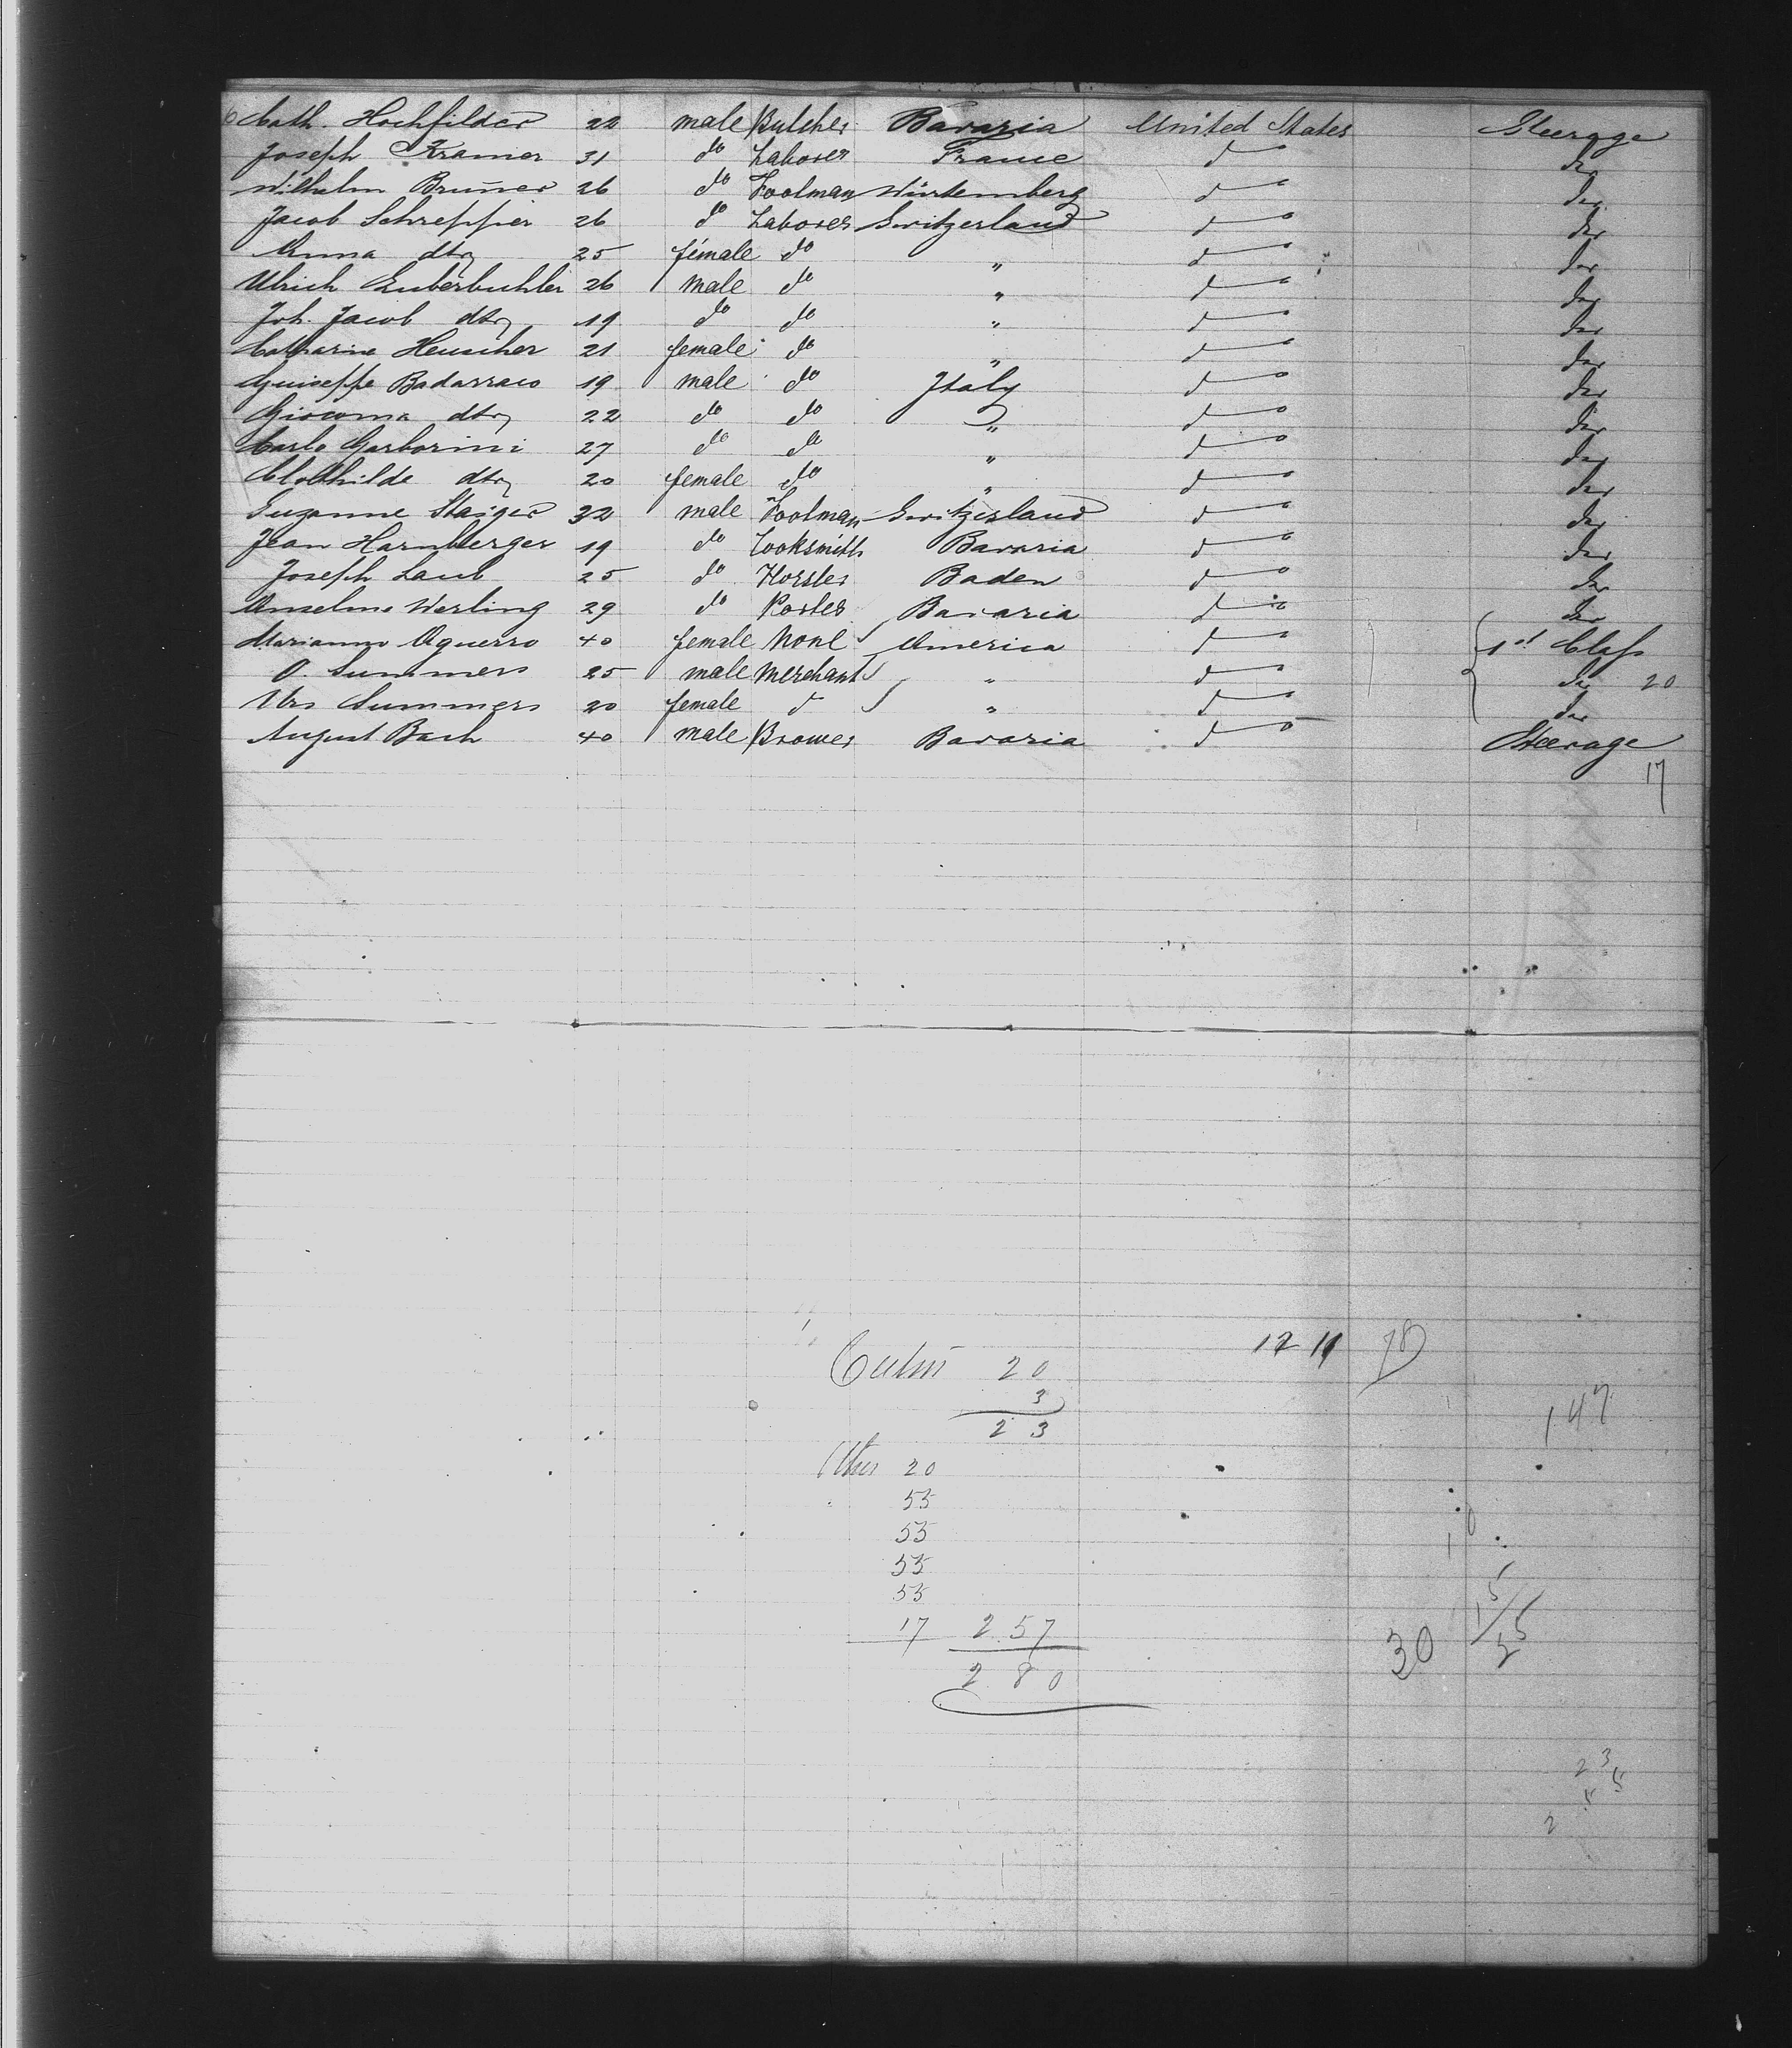 Cath. Hochfilder 22 male Butcher Bavaria United States Steerage
Joseph Kramer 31 do Laborer France do do
Wilhelm Bruner 26 do Toolman Würtemberg do do
Jacob Schrepper 26 do Laborer Switzerland do do
Anna dto 25 female do " do do
Ulrich Luberbuhler 26 male do " do do
Joh. Jacob dto 19 do do " do do
Catharine Heuscher 21 female do " do do
Guiseppe Badarraco 19 male do Italy do do
Giacoma dto 22 do do " do do
Carlo Garborini 27 do do " do do
Clothilde dto 20 female do " do do
Suzanne Staiger 32 male Toolman Switzerland do do
Jean Harnberger 19 do Looksmith Bavaria do do
Joseph Laub 25 do Horsler Baden do do
Anselme Werling 29 do Porter Bavaria do do
Marianno Aguerro 40 female None America do 1st Class
O. Summers 25 male Merchant " do do 20
Mrs Summers 20 female do " do do
August Bach 40 male Brower Bavaria do Steerage
17
12 11
20
3
23
147
Other 20
55
55
55
55
17 257
280
30
15
35
23
5
5
2